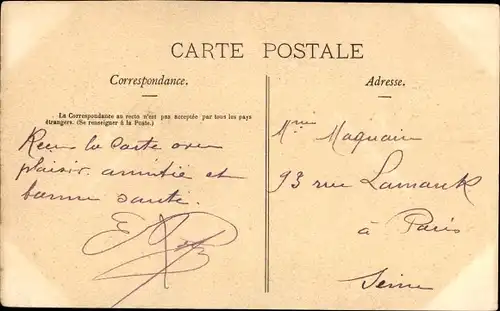 CARTE POSTALE
Correspondance.
La Correspondance au recto n'est pas acceptée par tous les pays
étrangers. (Se renseigner à la Poste.)
Recu la Carte avec
plaisir. amitié et
bonne santé.
Adresse.
Mme Maquair
93 rue Lamarck
à Paris
Seine